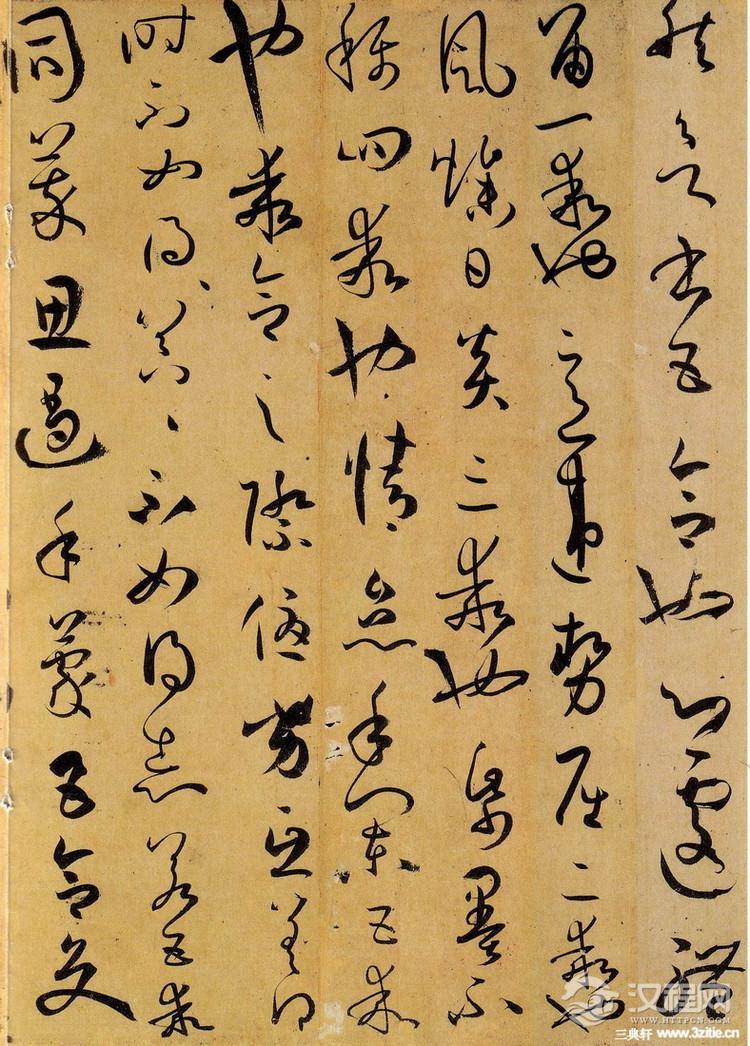 然欲書五合也心遽體
留一乖也意違勢屈二乖也
風燥日炎三乖也紙墨不
稱四乖也情怠手闌五乖
也乖合之際優劣互差得
時不如得〻器〻不如得志若五乖
同萃思遏手蒙五合交
汉程网
WWW.HTTPCN.COM
三典轩 www.3zitie.cn